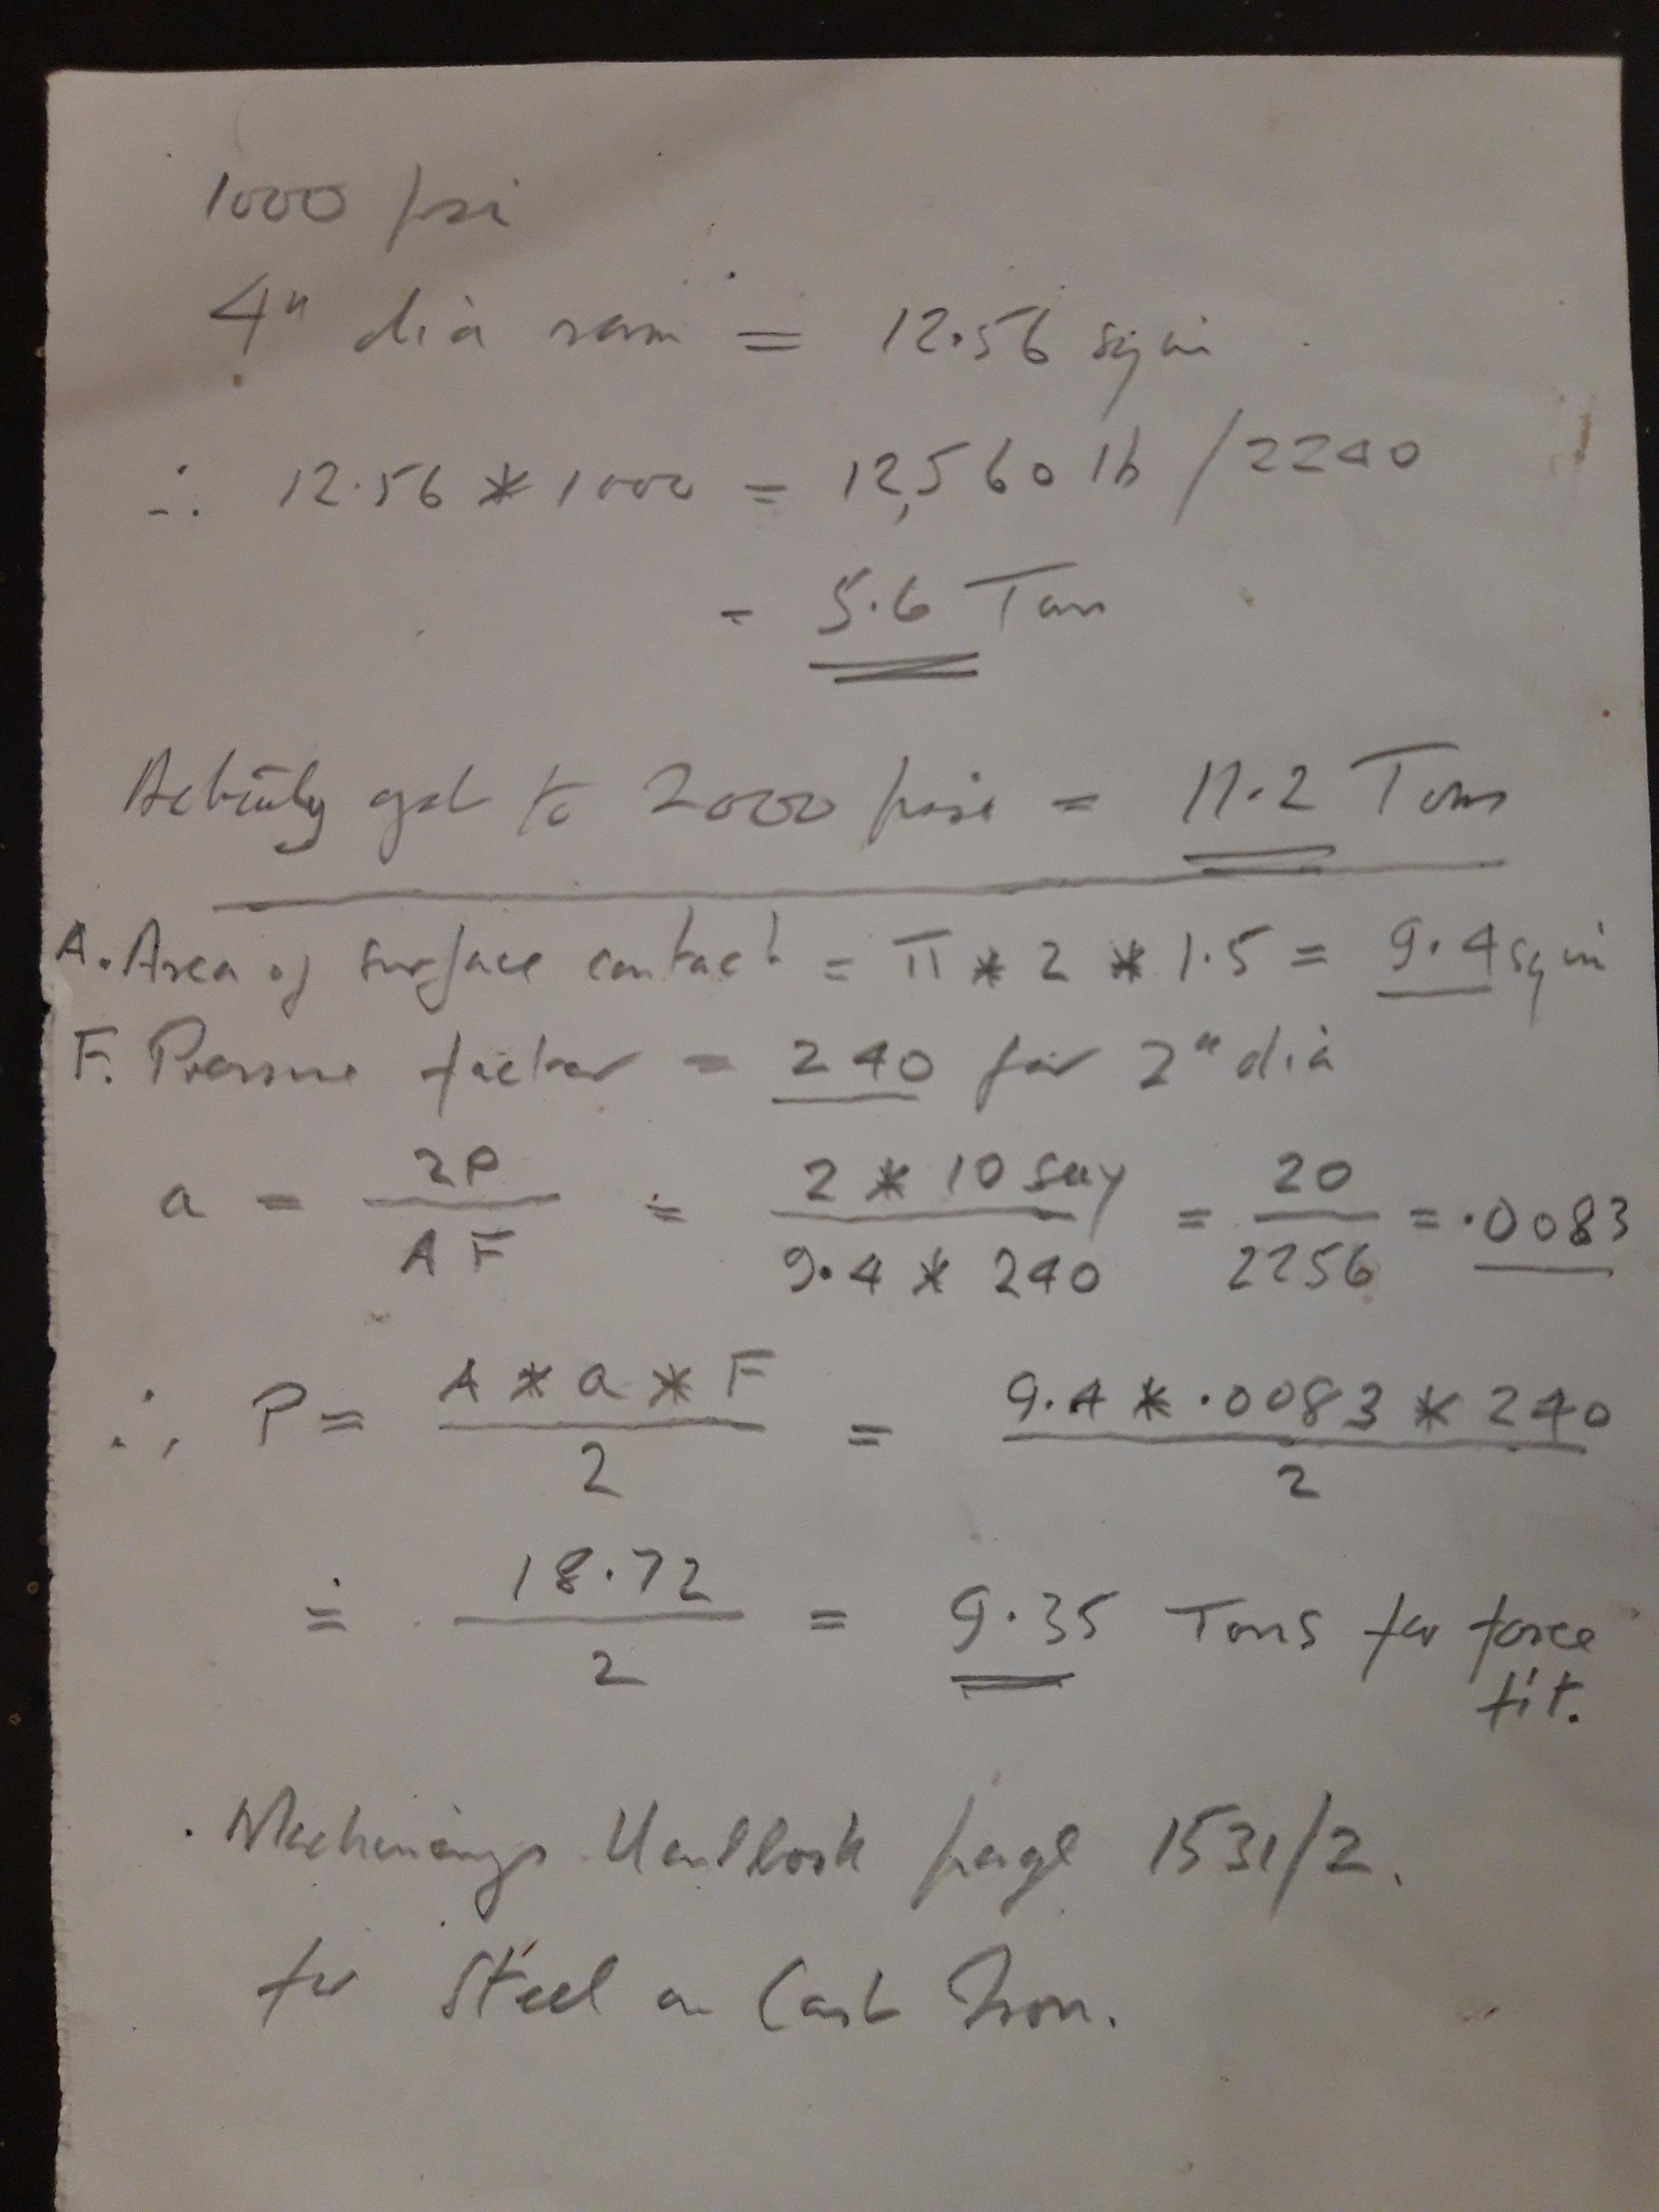 1000 psi
4" dia ram = 12.56 sq in
∴ 12.56 * 1000 = 12,560 lb / 2240
= 5.6 Ton
Actually got to 2000 psi = 11.2 Tons
A. Area of surface contact = π * 2 * 1.5 = 9.4 sq in
F. Pressure factor = 240 for 2" dia
a = 2P / AF = 2 * 10 say / 9.4 * 240 = 20 / 2256 = .0083
∴ P = A * a * F / 2 = 9.4 * .0083 * 240 / 2
= 18.72 / 2 = 9.35 Tons for force
fit.
Machinerys Handbook page 1531/2.
for Steel on Cast Iron.